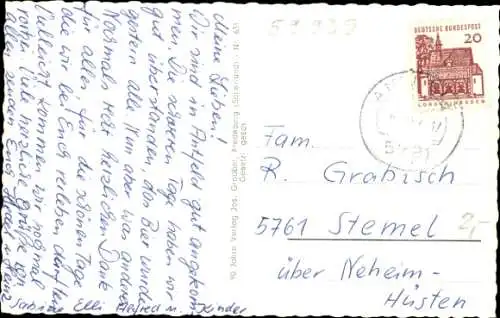 Meine Lieben!
Wir sind in Antfeld gut angekom-
men. Die schweren Tage haben wir
gut überstanden, das Bier wurde
gestern alle. Nun aber was anderes
Nochmals recht herzlichen Dank
für alles, für die schönen Tage
die wir bei Euch verleben durften
Vielleicht kommen wir nochmal
Viele herzliche Grüße von
allen senden Euch
Sabine Elli Alfred u. Kinder
90 Jahre Verlag Jos. Grobbel, Fredeburg (Sauerland), Nr. 631
Gesetzl. gesch.
59939
DEUTSCHE BUNDESPOST
20
LORSCH/HESSEN
5791
Fam.
R. Grabisch
5761 Stemel
über Neheim-
Hüsten
2,-